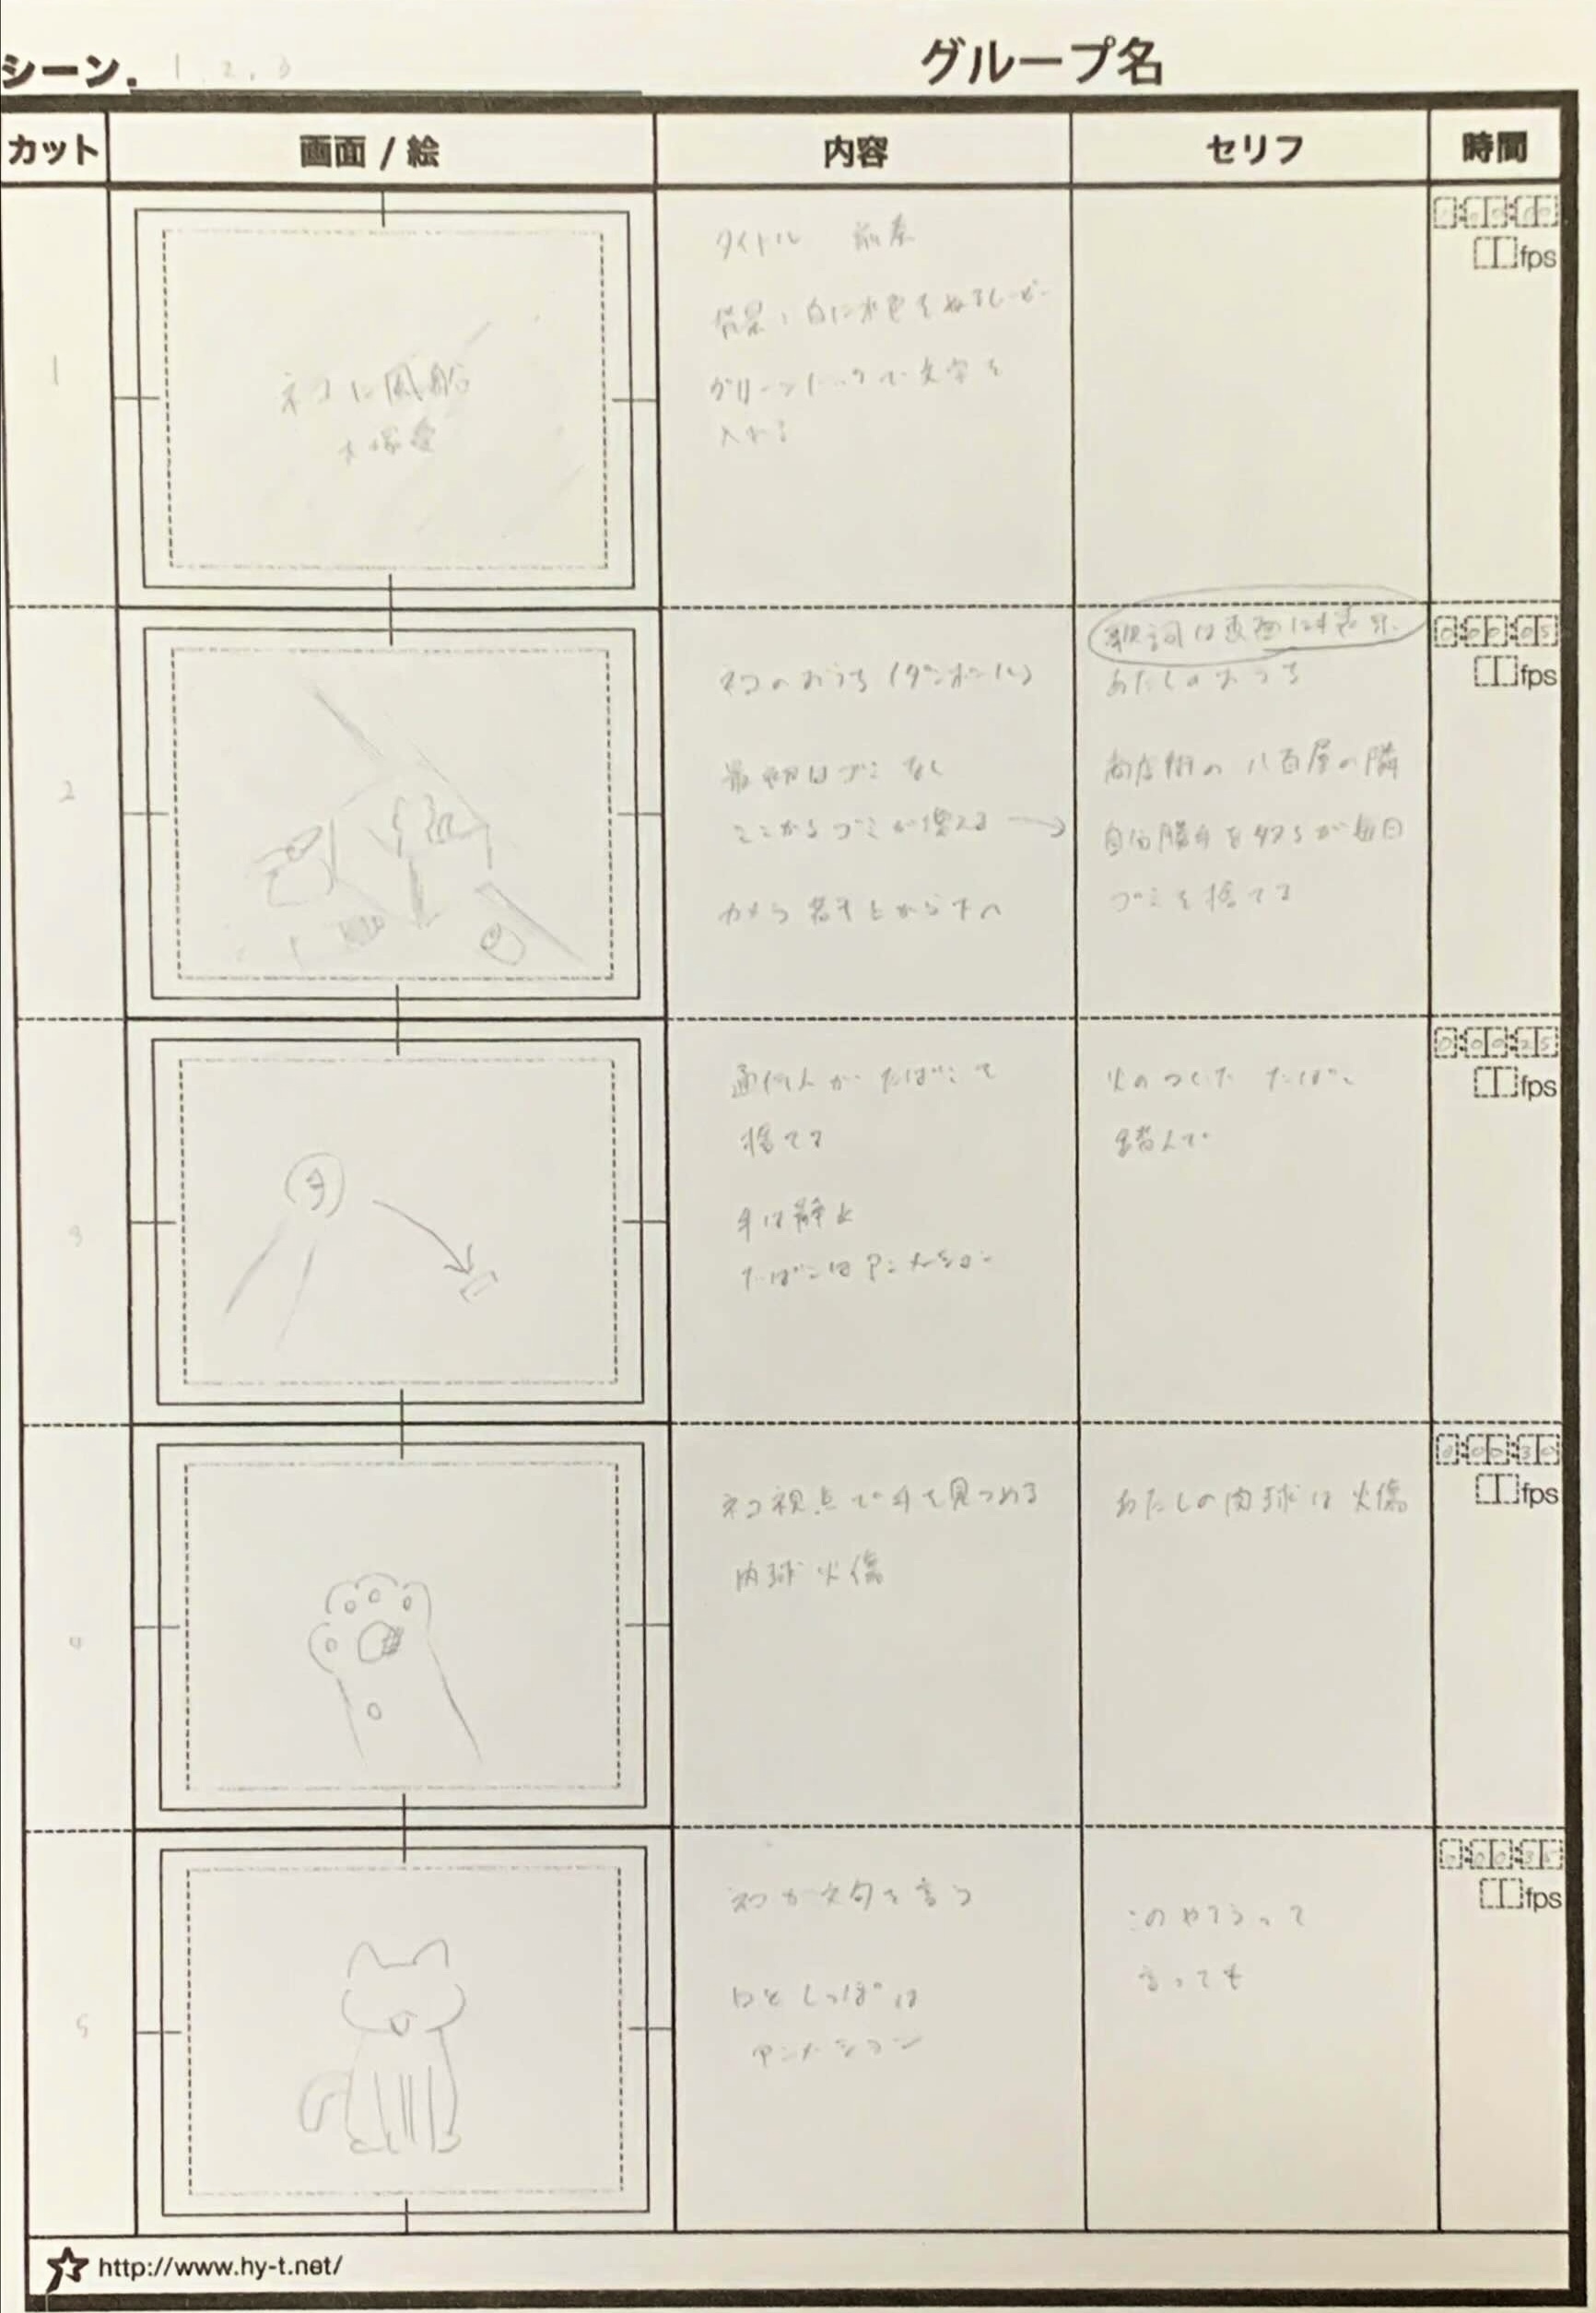 シーン. 1, 2, 3
グループ名
カット
画面 / 絵
内容
セリフ
時間
1
ネコに風船
大塚愛
タイトル 前奏
背景:白に水色をぬるムービー
グリーンバックで文字を
入れる
fps
2
ネコのおうち(ダンボール)
最初はゴミなし
ここからゴミが増える →
カメラ若干上から下へ
歌詞は画面に表示
あたしのおうち
商店街の八百屋の隣
自分勝手な奴らが毎日
ゴミを捨てる
0:00:05
fps
3
手
通行人がたばこを
捨てる
手は静止
たばこはアニメーション
火のついたたばこ
踏んで
0:00:25
fps
4
ネコ視点で手を見つめる
肉球火傷
あたしの肉球は火傷
0:00:30
fps
5
ネコが文句を言う
口としっぽは
アニメーション
このやろうって
言っても
0:00:35
fps
http://www.hy-t.net/